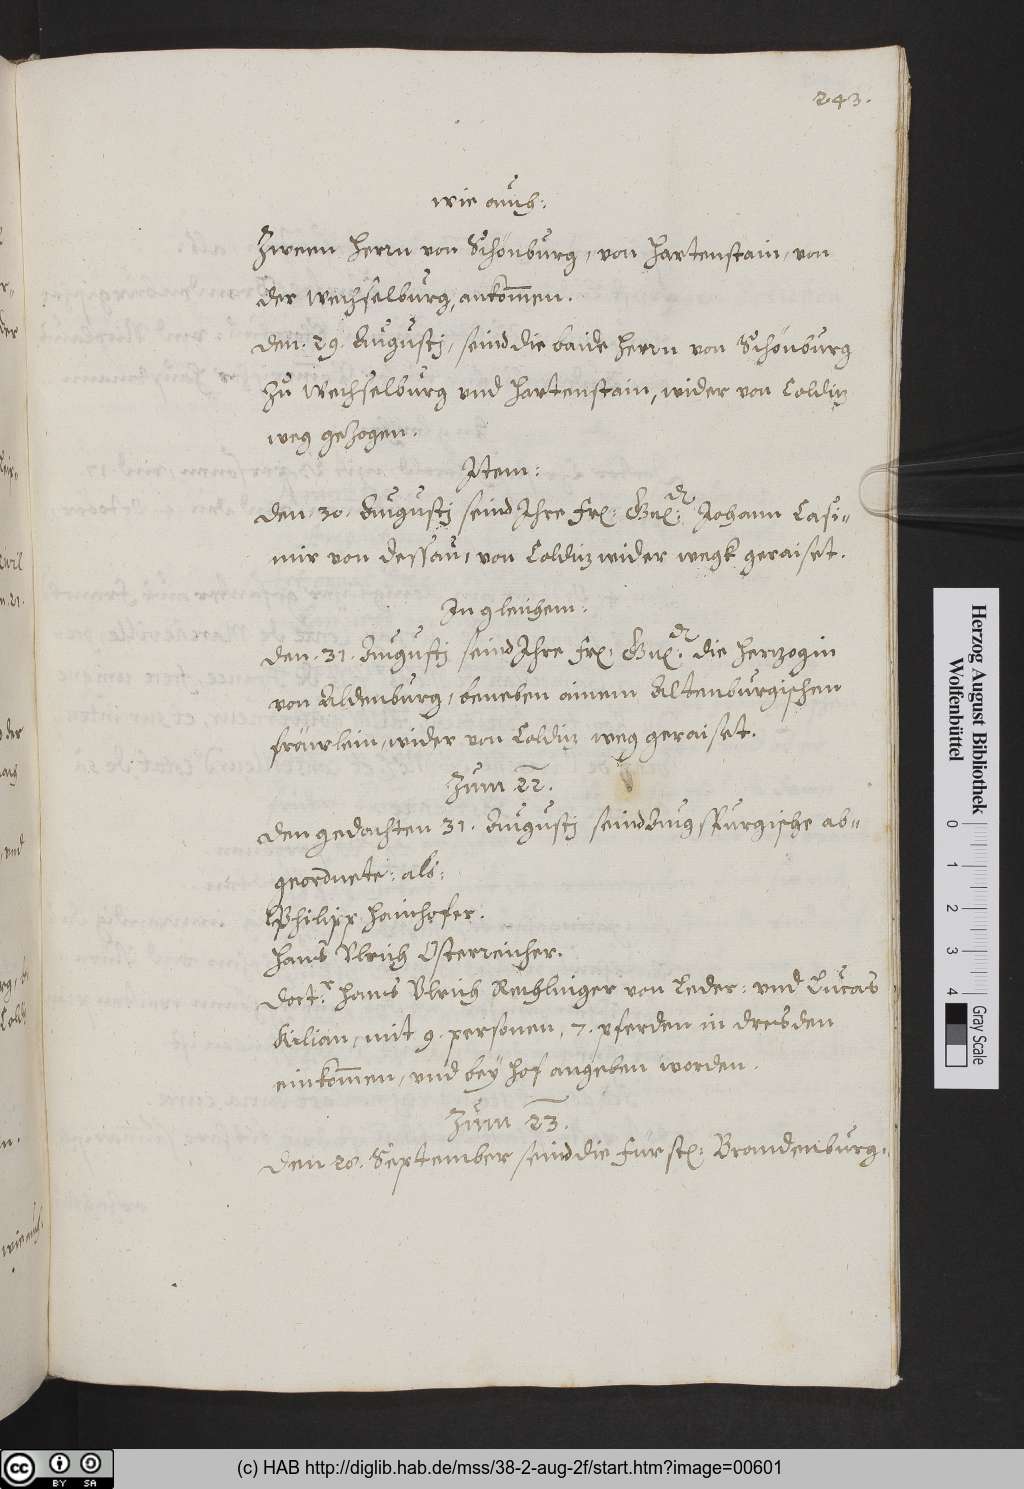 243.
wie auch:
Zween Herrn von Schönburg, von Hartenstain, von
der Wechselburg, ankom̅en.
den. 29. Augustj, seind die baide Herrn von Schönburg
zu Wechselburg vnd Hartenstain, wider von Colditz
weg gezogen.
Item:
den. 30. Augustj seind Ihre frl: Gnl: Johann Casi-
mir von Dessau, von Colditz wider wegk geraiset.
In gleichem:
den. 31. Augustj seind Ihre frl: Gnl: die Hertzogin
von Aldenburg, beneben ainem Altenburgischen
fräwlein, wider von Colditz weg geraiset.
Zum 22.
den gedachten 31. Augustj seind Augspurgische ab-
geordnete: als:
Philipp Hainhofer.
Hans Vlrich Österreicher.
Doct:r Hans Vlrich Rechlinger von Leder: vnd Lucas
Kilian, mit 9. personen, 7. pferden in dresden
einkom̅en, vnd bey Hof angeben worden.
Zum 23.
den 20. September seind die fürstl: Brandenburg-
wie auch:
Herzog August Bibliothek
Wolfenbüttel
0 1 2 3 4
Gray Scale
cc BY SA
(c) HAB http://diglib.hab.de/mss/38-2-aug-2f/start.htm?image=00601